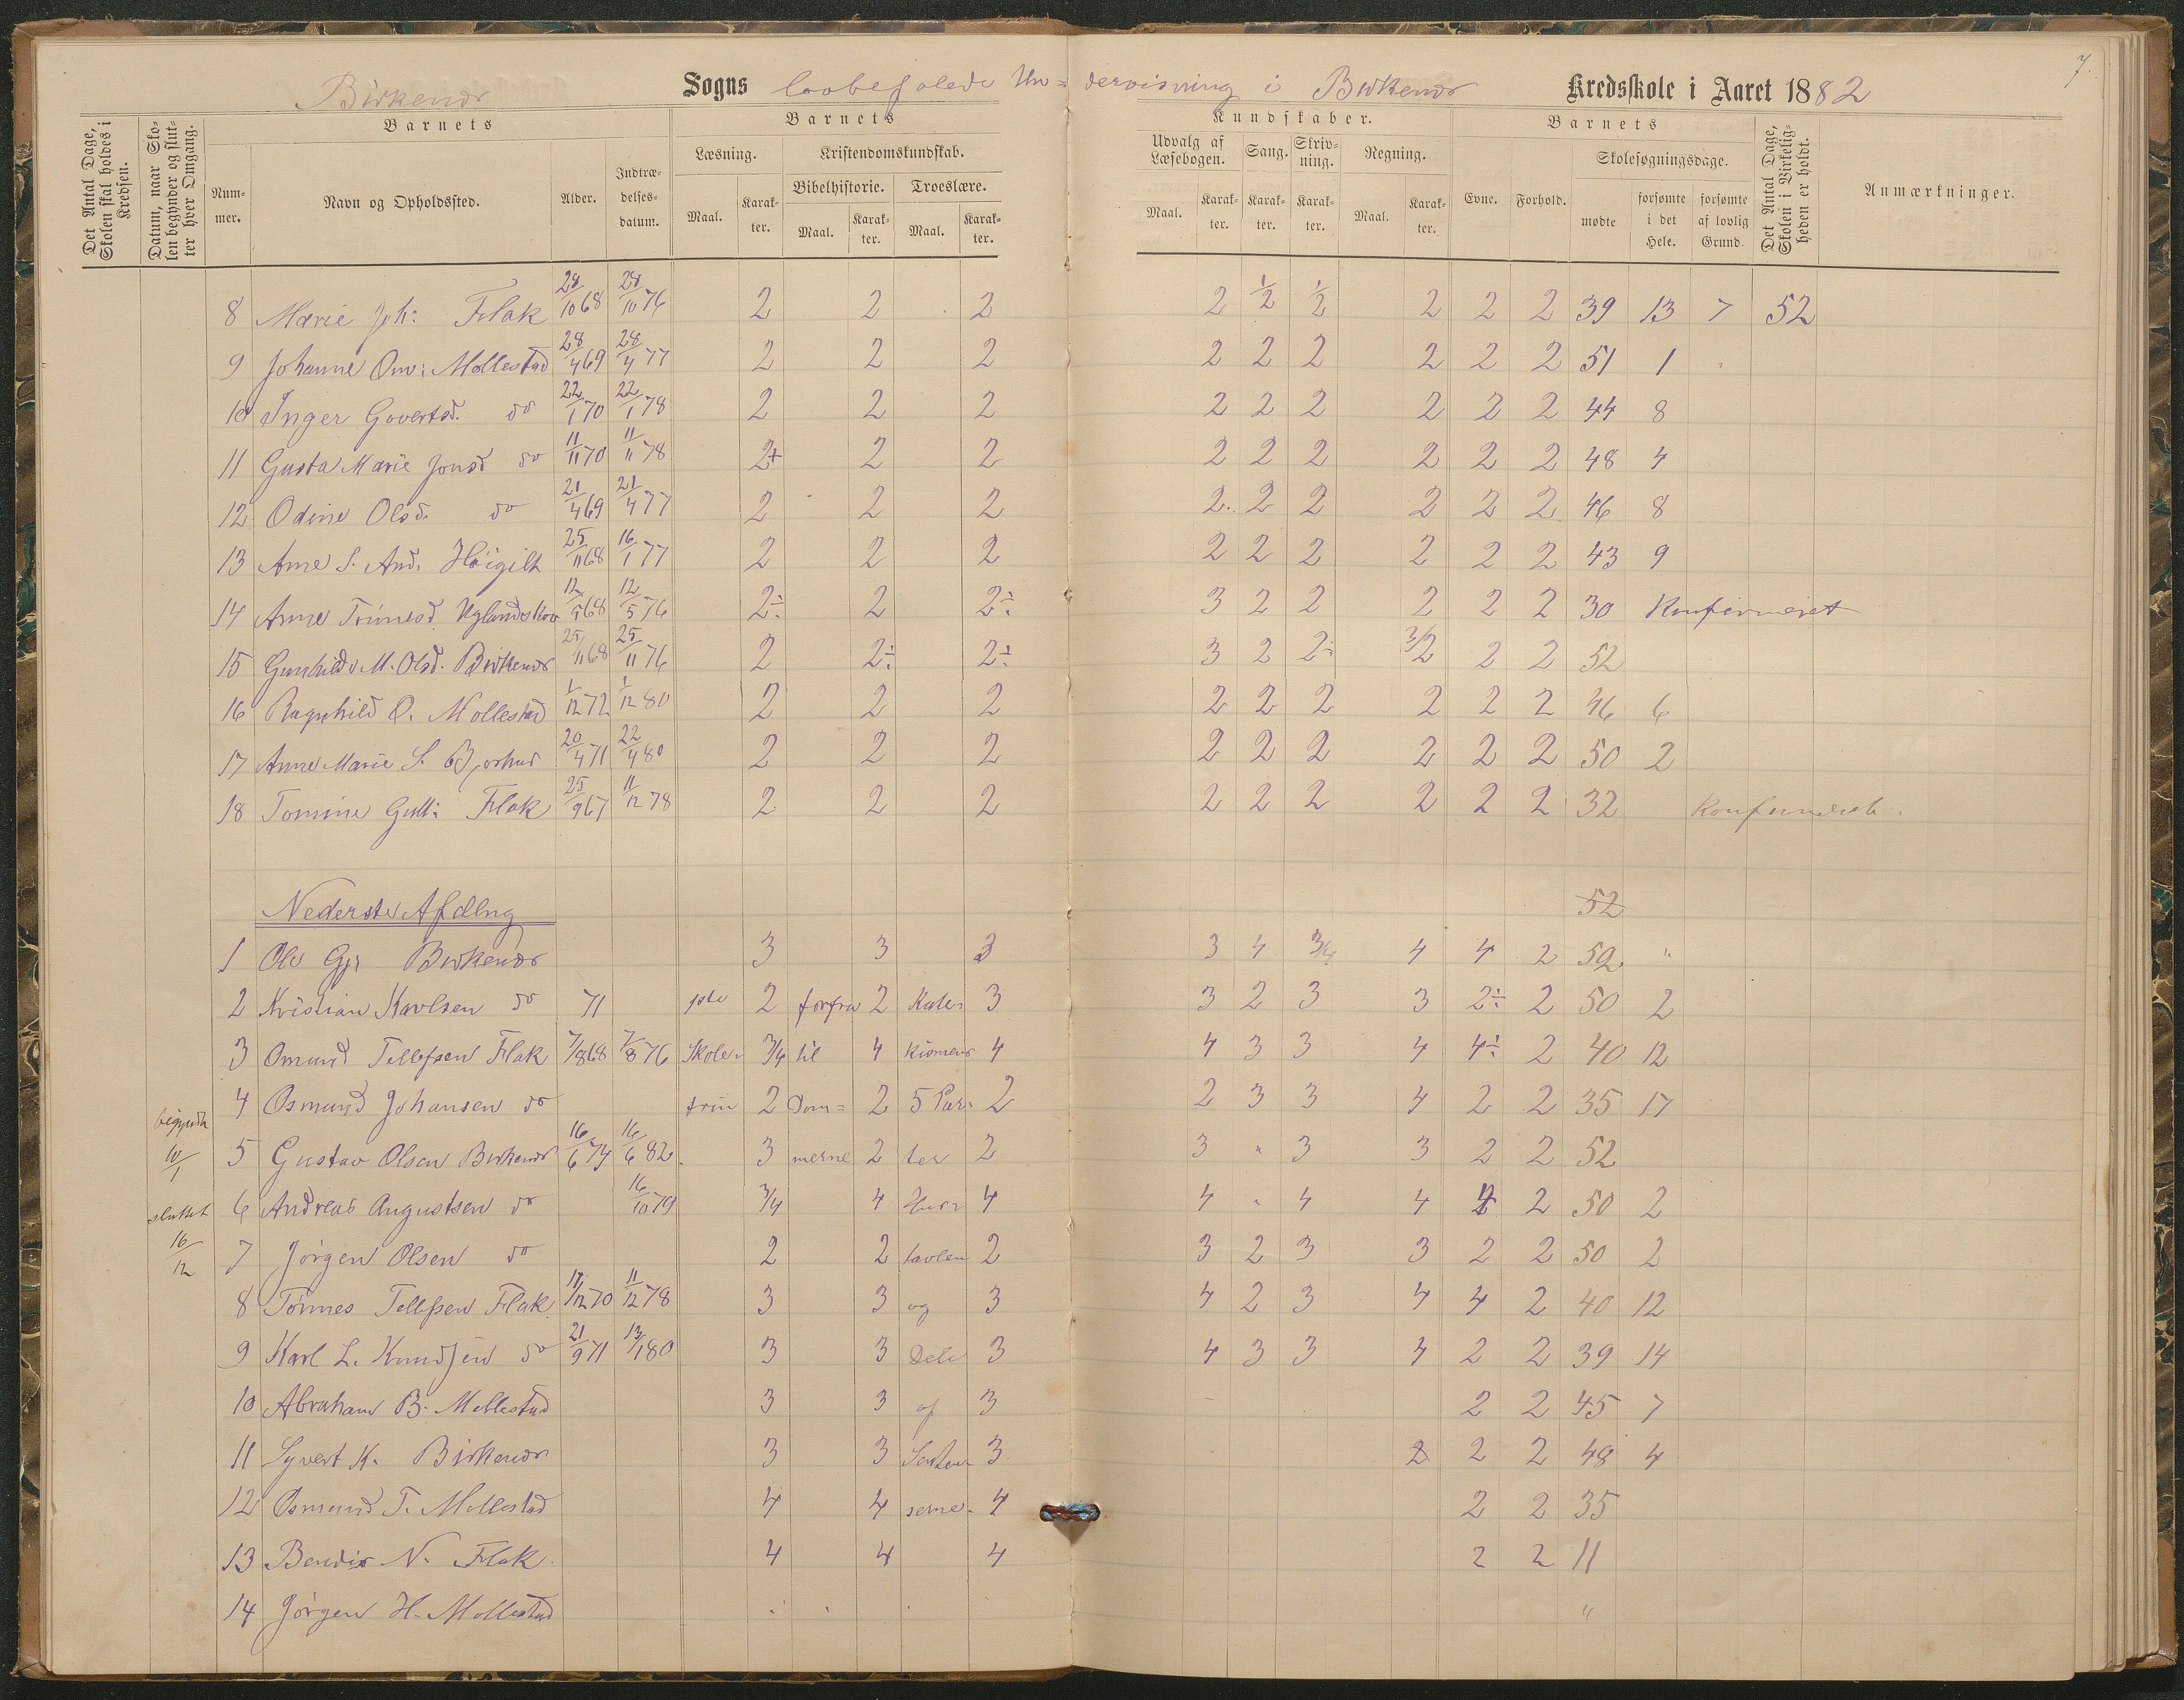 7.
Birkenær Sogns lovbefalede Un= dervisning i Birkenær Kredsskole i Aaret 1882
Det Antal Dage, Skolen skal holdes i Kredsen.
Datum, naar Skolen begynder og slutter hver Omgang.
Barnets
Barnets
Kundskaber.
Barnets
Nummer.
Navn og Opholdssted.
Alder.
Indtrædelsesdatum.
Læsning.
Kristendomskundskab.
Bibelhistorie.
Troeslære.
Maal.
Karakter.
Maal.
Karakter.
Maal.
Karakter.
Udvalg af Læsebogen.
Sang.
Skrivning.
Regning.
Maal.
Karakter.
Karakter.
Karakter.
Maal.
Karakter.
Evne.
Forhold.
Skolesøgningsdage.
mødte
forsømte i det Hele.
forsømte af lovlig Grund.
Det Antal Dage, Skolen i Virkeligheden er holdt.
Anmærkninger.
8 Marie Joh: Flak 28/10 68 28/10 76 2 2 2 2 1/2 1/2 2 2 2 39 13 7 52
9 Johanne Om: Mollestad 28/4 69 28/4 77 2 2 2 2 2 2 2 2 2 51 1
10 Inger Govertsd. do 22/1 70 22/1 78 2 2 2 2 2 2 2 2 2 44 8
11 Gusta Marie Jonsd do 11/11 70 11/11 78 2+ 2 2 2 2 2 2 2 2 48 4
12 Odine Olsd. do 21/4 69 21/4 77 2 2 2 2 2 2 2 2 2 46 8
13 Ane S. And. Høigilt 25/11 68 16/1 77 2 2 2 2 2 2 2 2 2 43 9
14 Anne Tønnesd. Uglandskov 12/5 68 12/5 76 2÷ 2 2÷ 3 2 2 2 2 2 30 Konfirmeret
15 Gunhild M. Olsd. Birkenær 25/11 68 25/11 76 2 2÷ 2÷ 3 2 2÷ 3/2 2 2 52
16 Ragnhild O. Mollestad 1/12 72 1/12 80 2 2 2 2 2 2 2 2 2 46 6
17 Anne Marie S. Bjorhus 20/4 71 22/4 80 2 2 2 2 2 2 2 2 2 50 2
18 Tomine Gutt: Flak 25/9 67 11/12 78 2 2 2 2 2 2 2 2 2 32 Konfirmeret.
Nederste Afdlng 52
1 Ole Gjr Birkenær 3 3 3 3 4 3/4 4 4 2 52 "
2 Kristian Karlsen do 71 2 forfra 2 Kate= 3 3 2 3 3 2÷ 2 50 2
3 Omund Tellefsen Flak 7/8 68 7/8 76 Skole= 3/4 til 4 kismens 4 4 3 3 4 4÷ 2 40 12
4 Osmund Johansen do trin 2 Dom= 2 5 Par= 2 2 3 3 4 2 2 35 17
begyndt 10/1
5 Gustav Olsen Birkenær 16/6 74 16/6 82 3 merne 2 ter 2 3 " 3 3 2 2 52
sluttet 16/12
6 Andreas Augustsen do 16/10 79 3/4 4 Hus= 4 4 " 4 4 4 2 50 2
7 Jørgen Olsen do 2 2 tavlen 2 3 2 3 3 2 2 50 2
8 Tønnes Tellefsen Flak 11/12 70 11/12 78 3 3 og 3 4 2 3 4 4 2 40 12
9 Karl L. Knudsen do 21/9 71 13/1 80 3 3 Dele 3 4 3 3 4 2 2 39 14
10 Abraham B. Mollestad 3 3 af 3 2 2 45 7
11 Syvert K. Birkenær 3 3 3 2 2 2 48 4
12 Osmund T. Mollestad 4 4 serne. 4 2 2 35
13 Bendix N. Flak 4 4 4 2 2 11
14 Jørgen H. Mollestad "